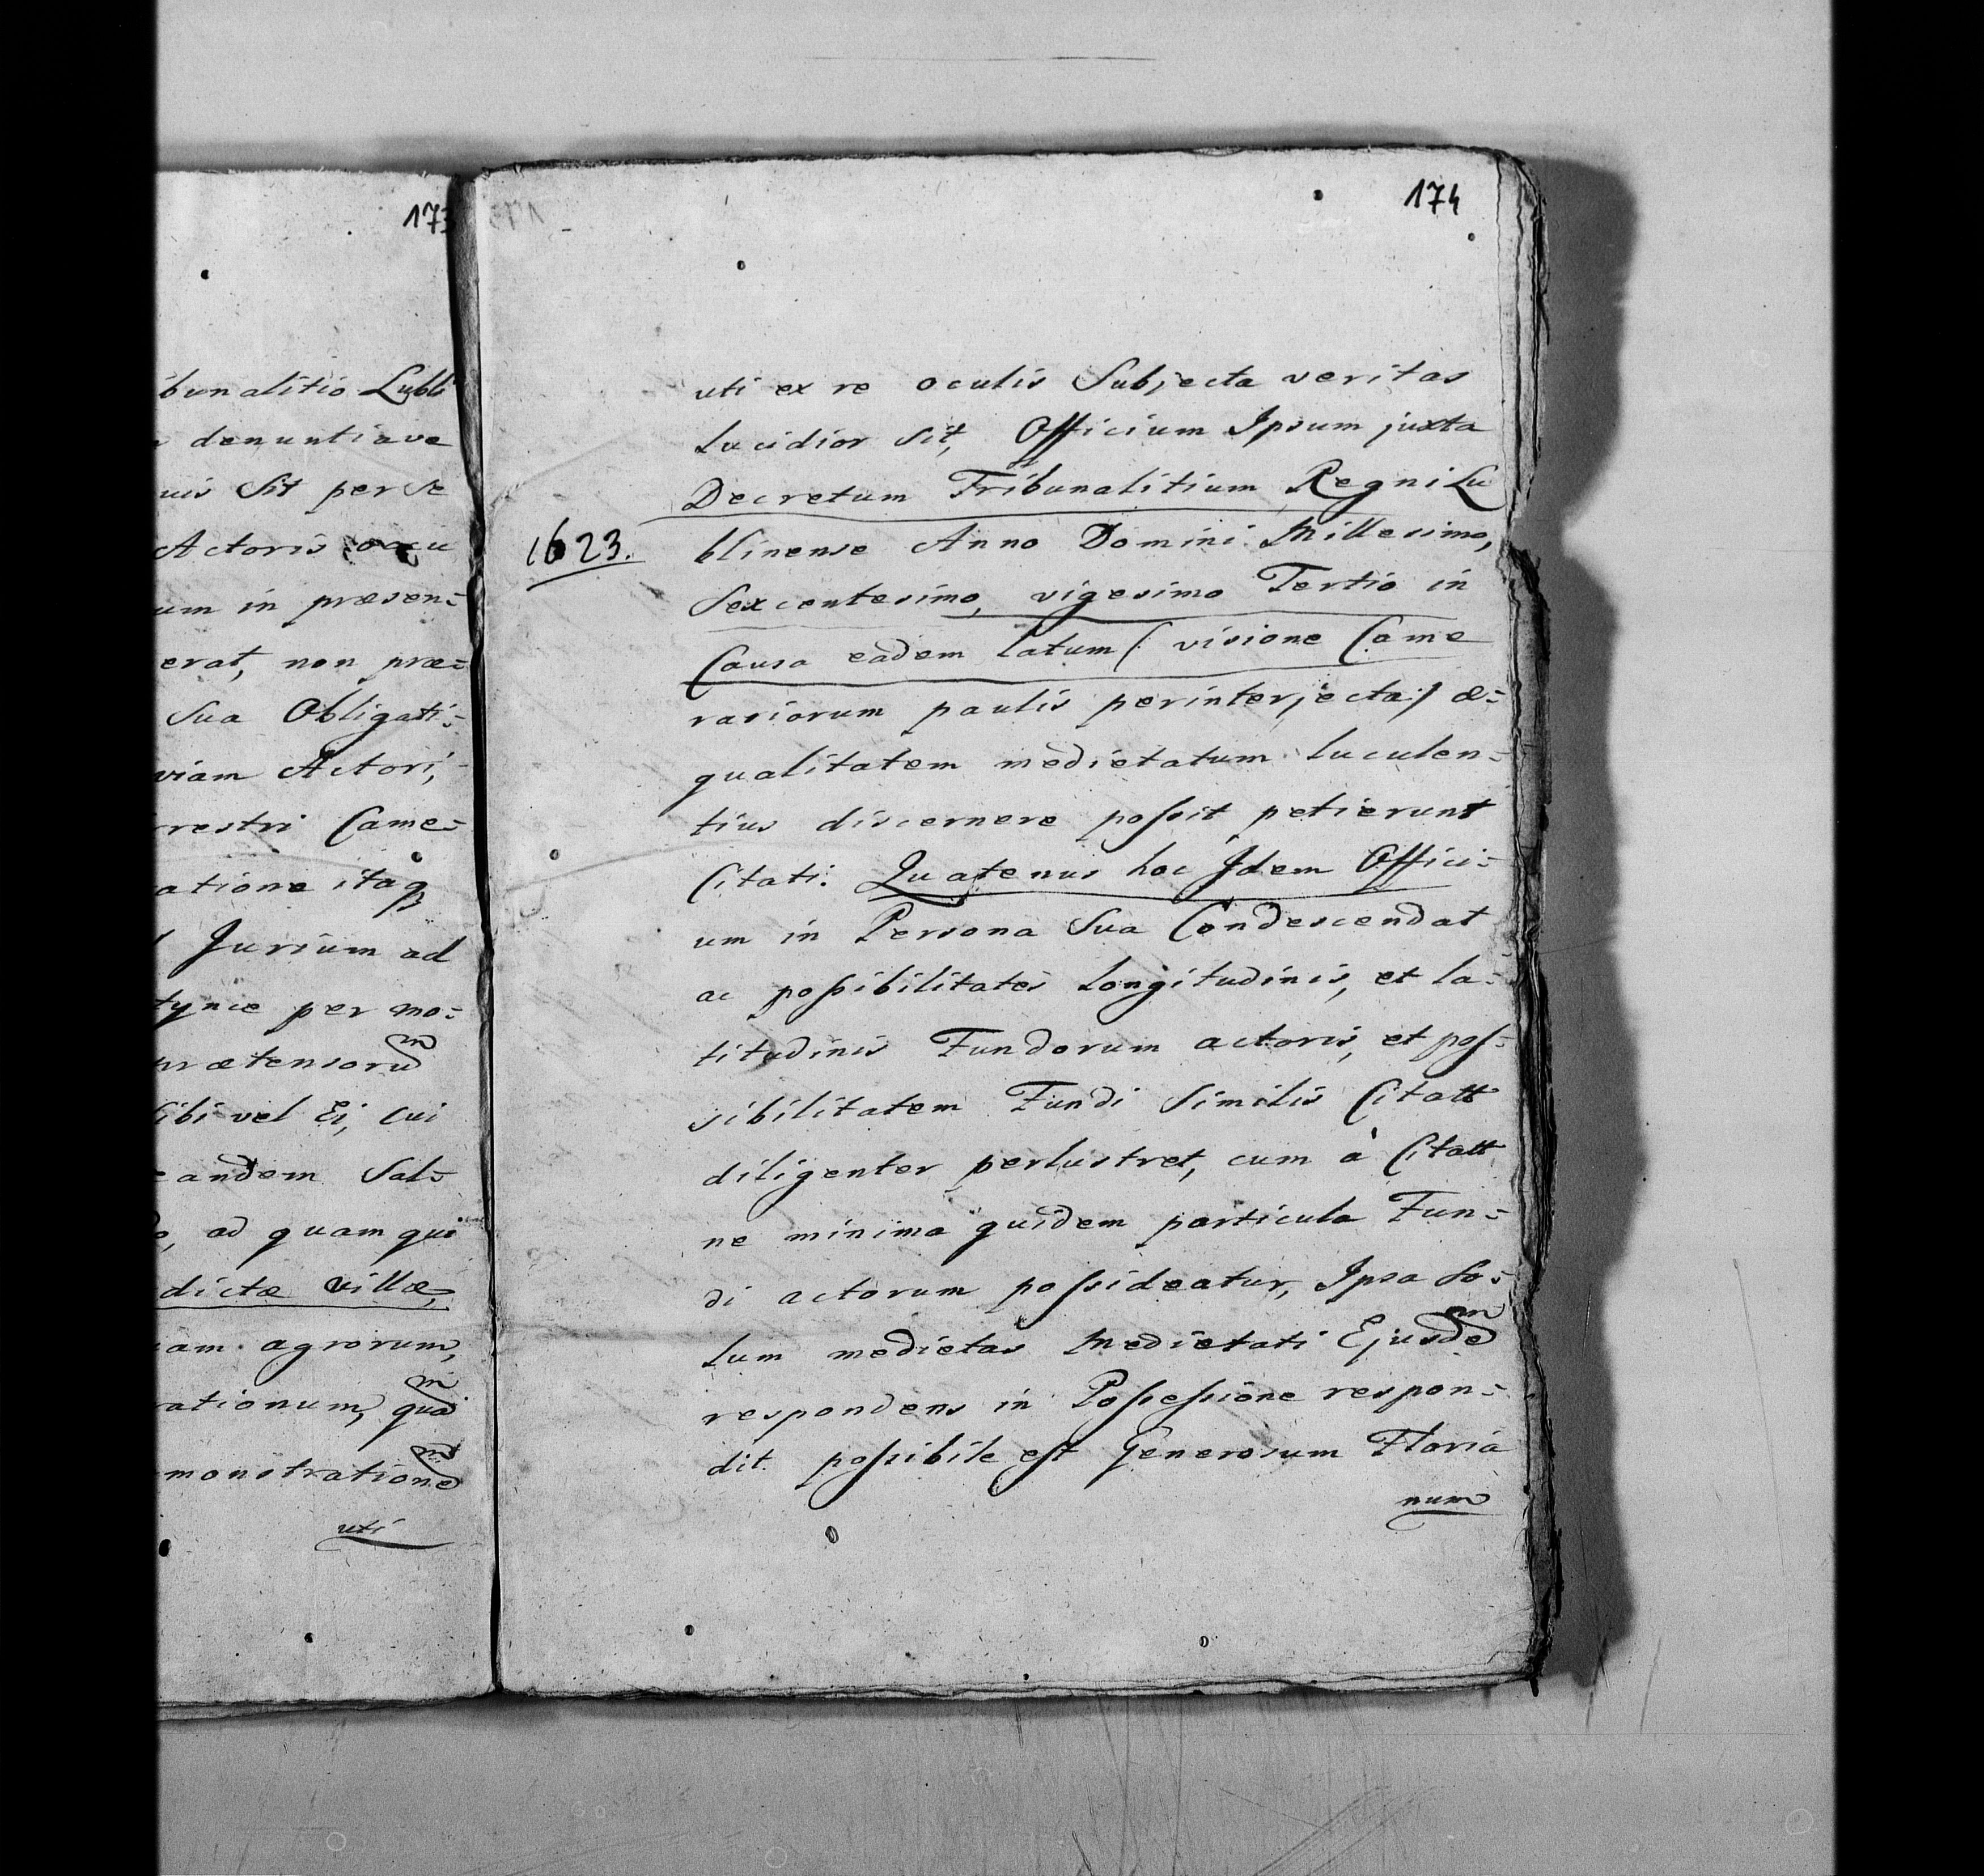 173
bunalitio Lubli
denuntiave
uis Sit per se
Actoris
um in præsen=
erat, non præ=
Sua Obligati=
viam Actori,
restri Came=
atione itaq
Jurium ad
tynie per mo=
prætensoru
m
Sibi vel Ei, cui
eandem Sal=
, ad quam qui
dictæ villæ,
am agrorum,
rationum, qua
m
monstratione
m
uti
174
1623.
uti ex re oculis Subjecta veritas
Lucidior Sit, Officium Ipsum juxta
Decretum Tribunalitium Regni Lu
blinense Anno Domini Millesimo,
Sexcentesimo, vigesimo Tertio in
Causa eadem latum (: visione Came
rariorum paulis perinterjecta:) æ=
qualitatem medietatum luculen=
tius discernere possit petierunt
Citati. Quatenus hoc Idem Offici=
um in Persona Sua Condescendat
ac possibilitates Longitudinis, et la=
titudinis Fundorum actoris, et pos=
sibilitatem Fundi Similis Citatt
diligenter perlustret, cum à Citatt
ne minima quidem particula Fun=
di actorum possideatur, Ipsa So=
lum medietas Medietati Ejusde
m
respondens in Possessione respon=
dit. possibile est Generosum Floria
num